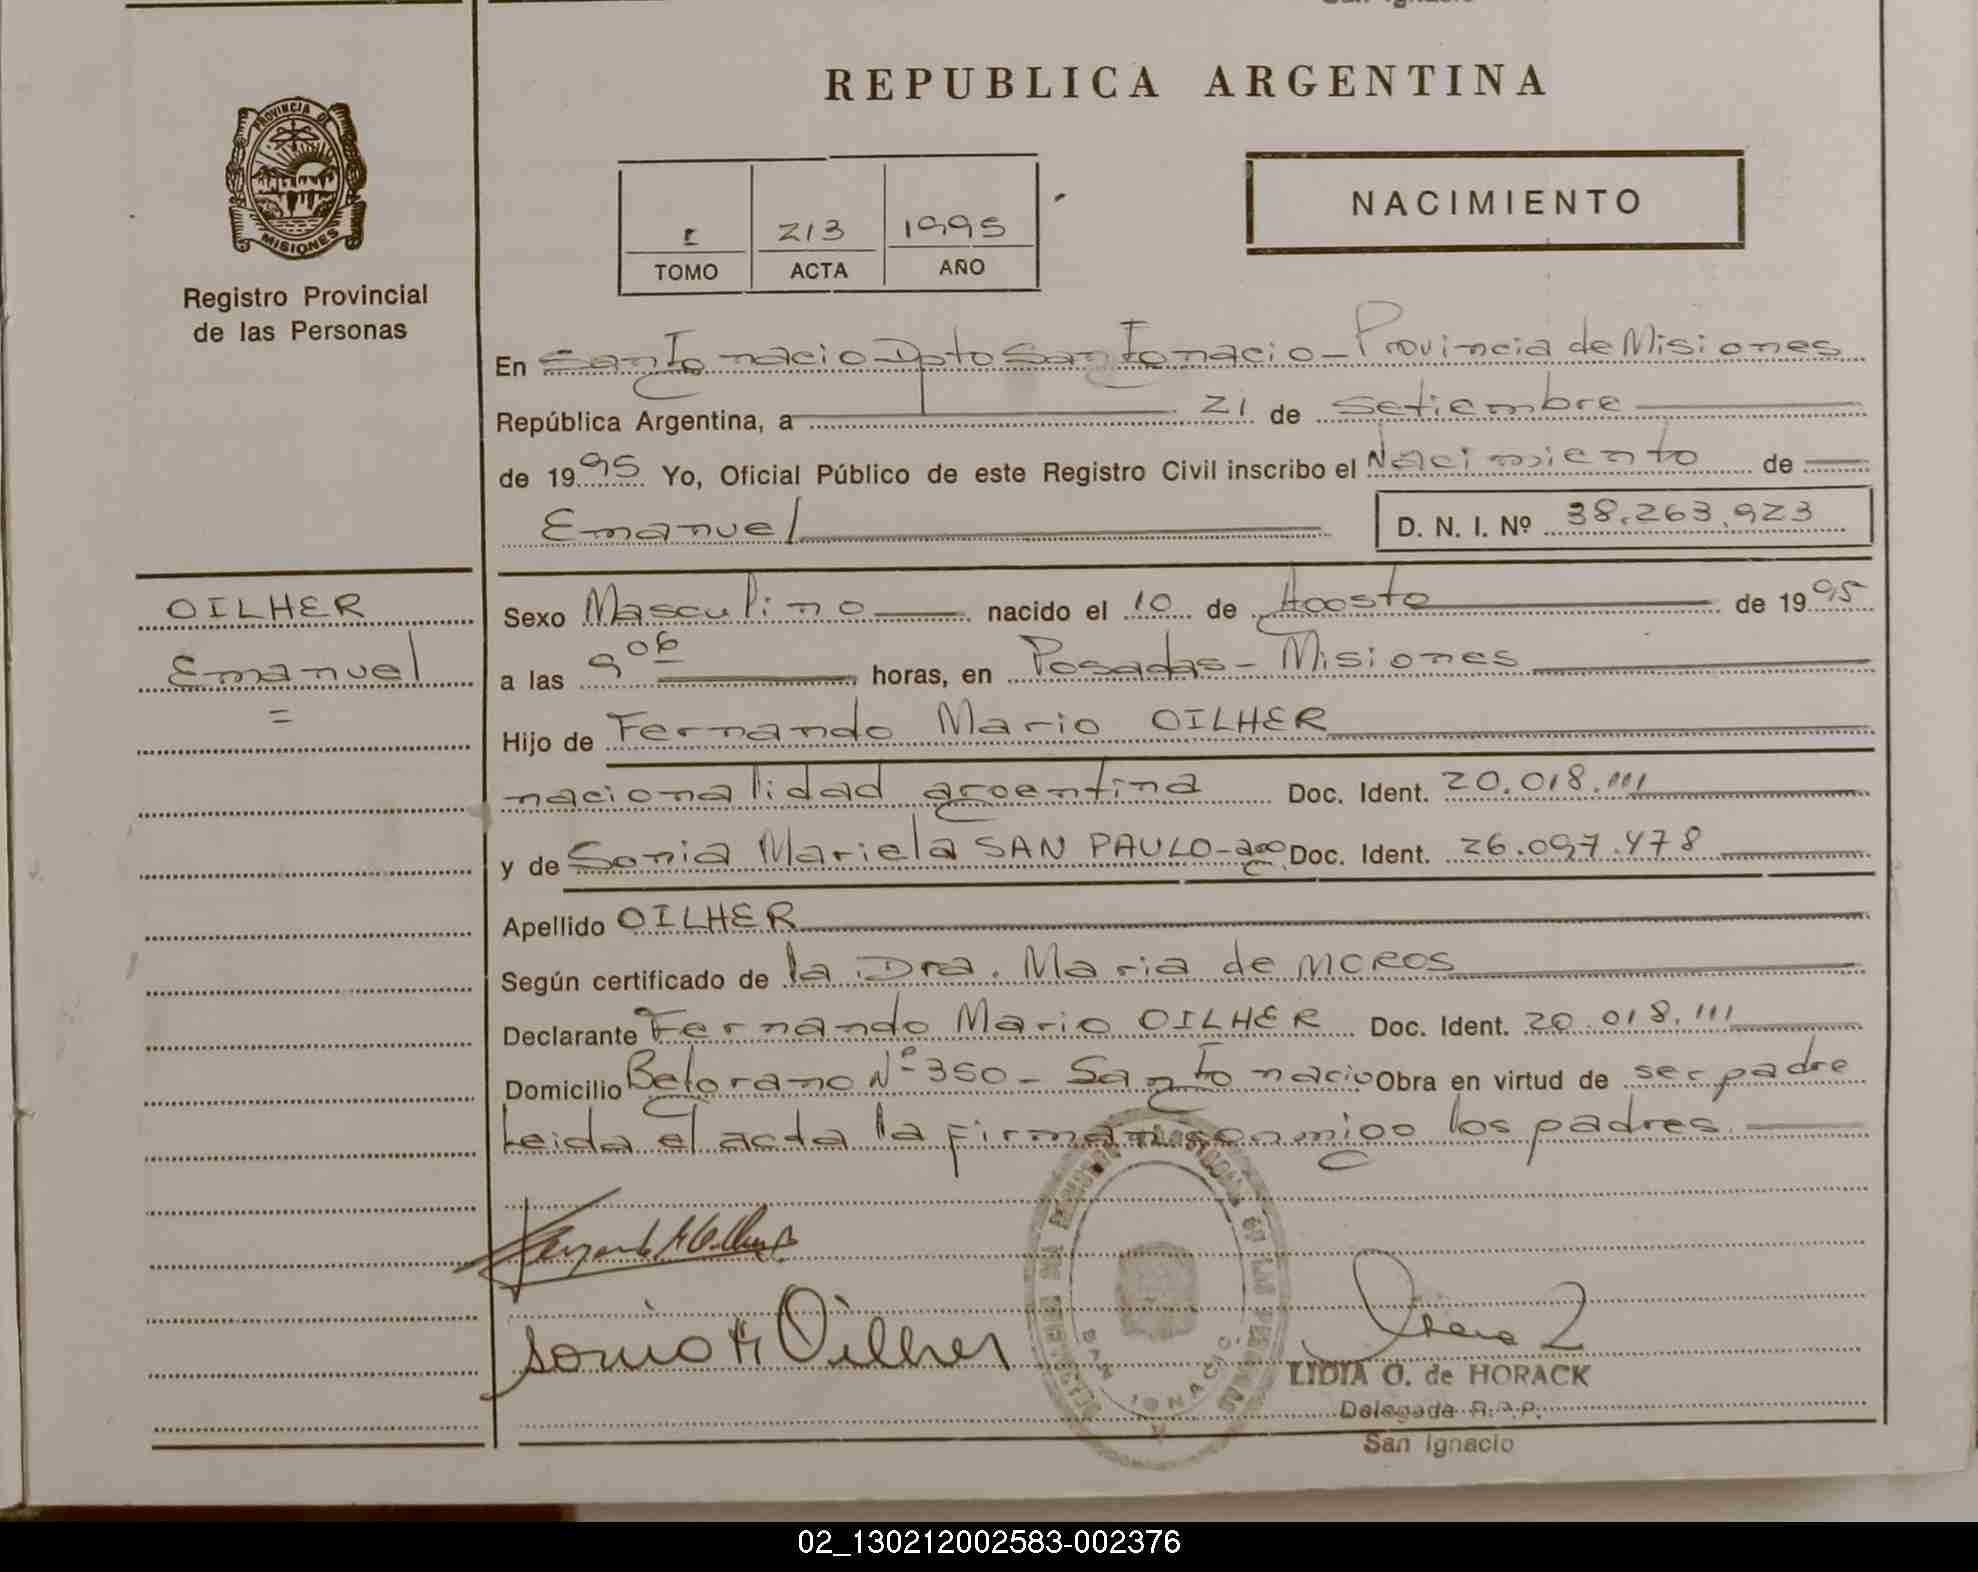 San Ignacio
REPUBLICA ARGENTINA
PROVINCIA DE
MISIONES
Registro Provincial
de las Personas
I 213 1995
TOMO ACTA AÑO
NACIMIENTO
En San Ignacio Dpto San Ignacio - Provincia de Misiones
República Argentina, a 21 de Setiembre
de 1995 Yo, Oficial Público de este Registro Civil inscribo el Nacimiento de
Emanuel D. N. I. Nº 38.263.923
OILHER
Emanuel
=
Sexo Masculino nacido el 10 de Agosto de 1995
a las 9 06 horas, en Posadas - Misiones
Hijo de Fernando Mario OILHER
nacionalidad argentina Doc. Ident. 20.018.111
y de Sonia Mariela SAN PAULO - arg. Doc. Ident. 26.097.478
Apellido OILHER
Según certificado de la Dra. Maria de MOROS
Declarante Fernando Mario OILHER Doc. Ident. 20.018.111
Domicilio Belgrano Nº 350 - San Ignacio Obra en virtud de ser padre
Leida el acta la firman conmigo los padres
Sonia M Oilher
SAN IGNACIO
LIDIA O. de HORACK
Delegada R.P.P.
San Ignacio
02_130212002583-002376